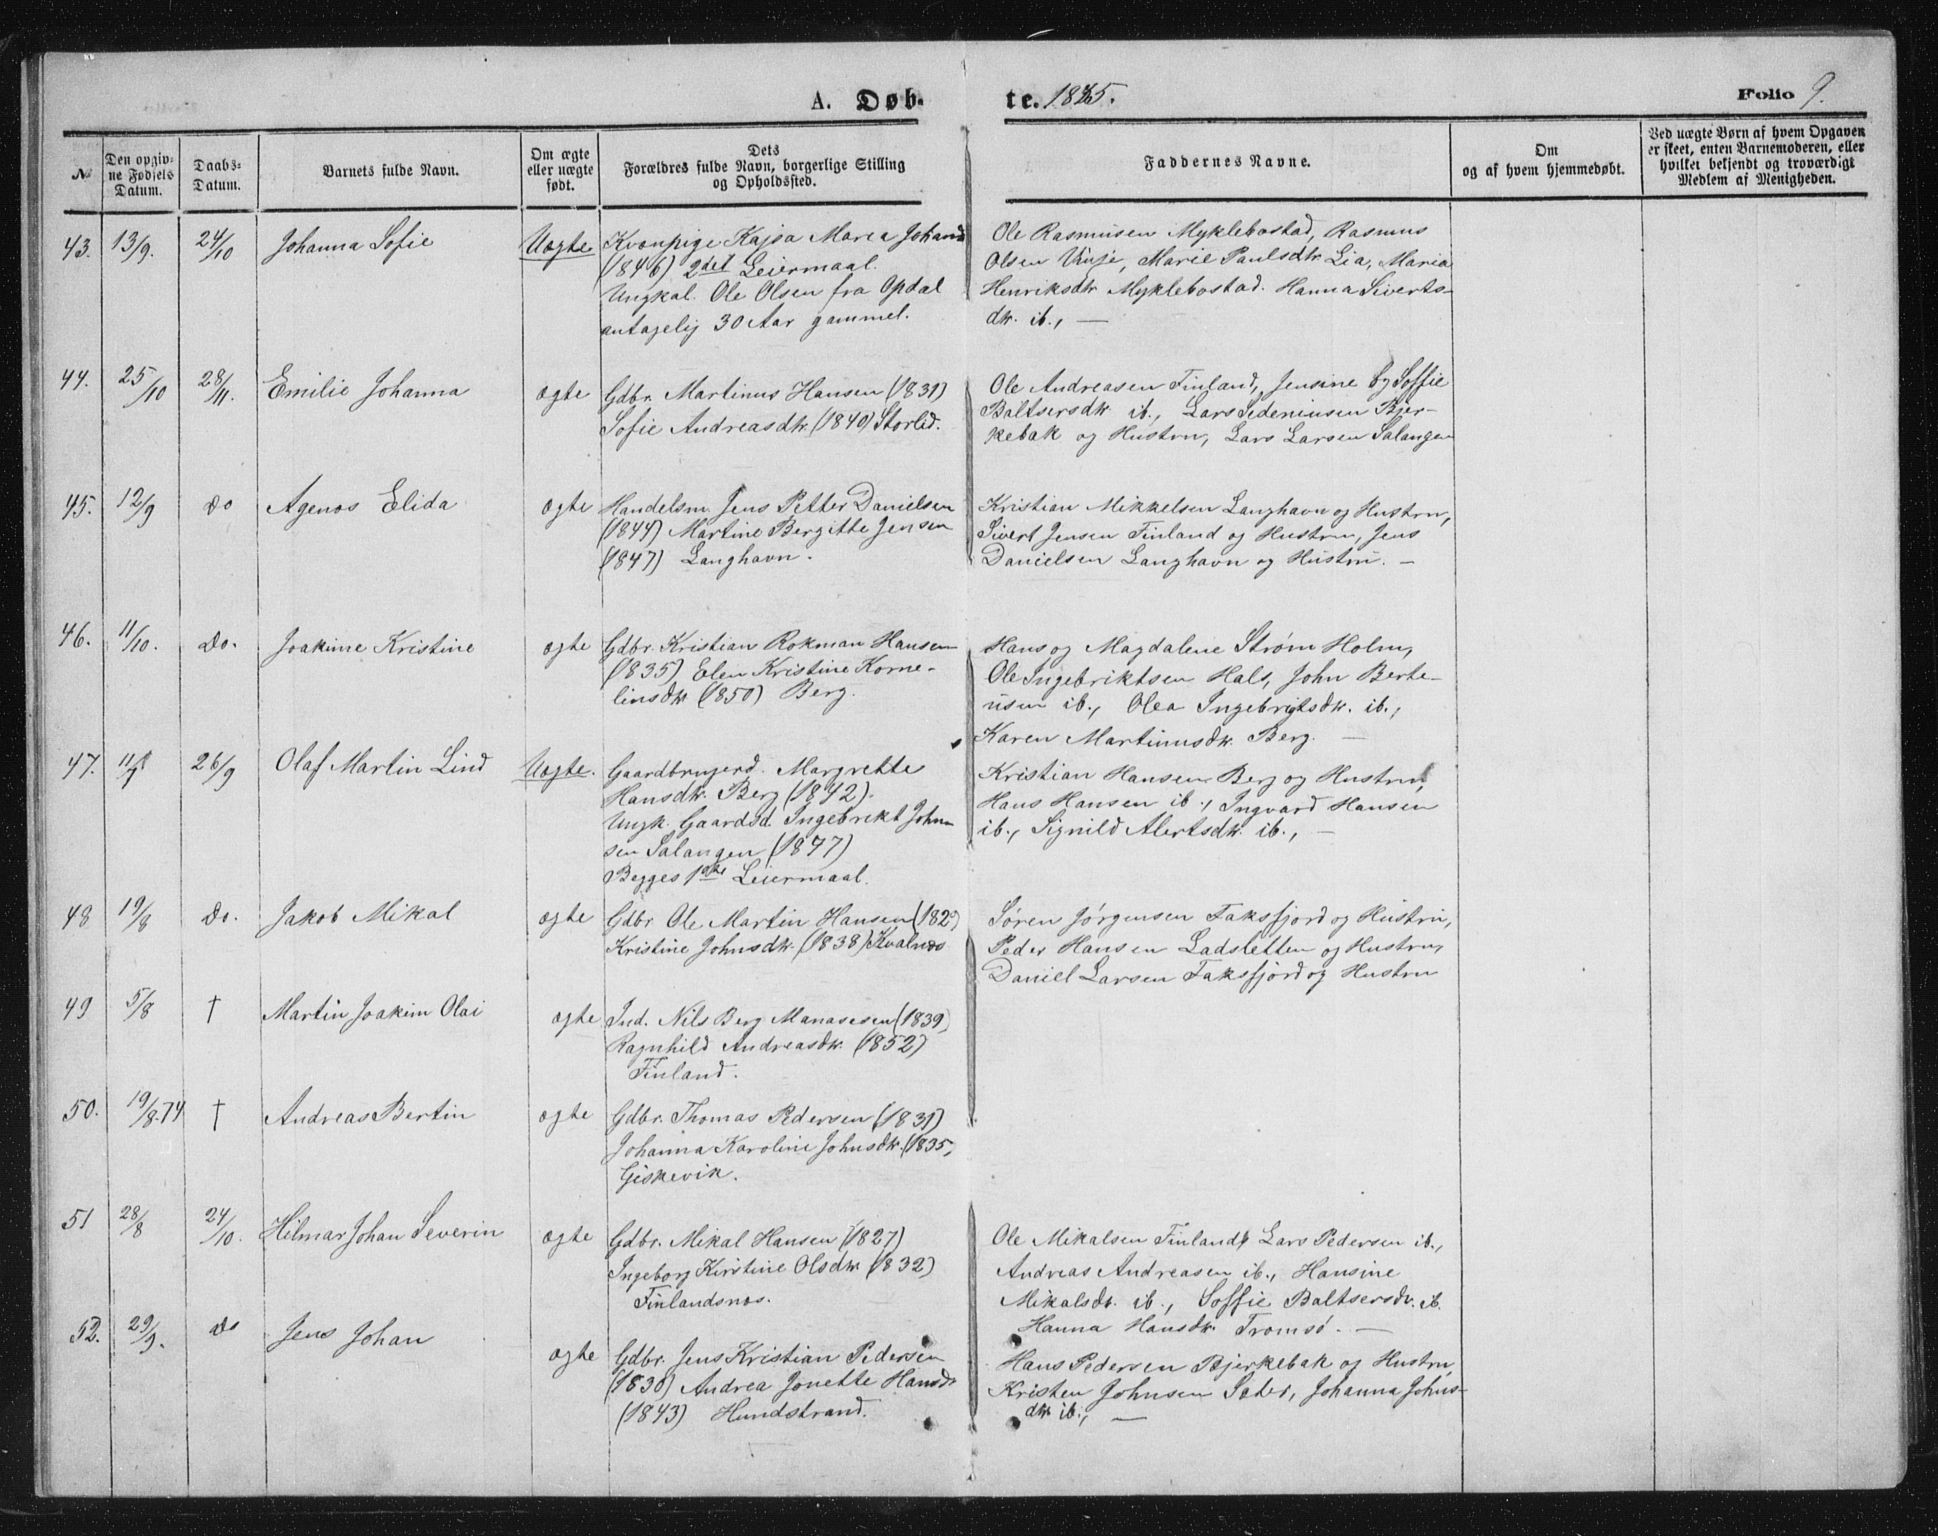 A. Døb-
te. 1875.
Folio 9.
№
Den opgiv-
ne Fødsels
Datum.
Daabs-
Datum.
Barnets fulde Navn.
Om ægte
eller uægte
født.
Dets
Forældres fulde Navn, borgerlige Stilling
og Opholdssted.
Faddernes Navne.
Om
og af hvem hjemmedøbt.
Ved uægte Børn af hvem Opgaven
er skeet, enten Barnemoderen, eller
hvilket bekjendt og troværdigt
Medlem af Menigheden.
43. 13/9. 24/10 Johanna Sofie Uægte
Kvanpige Kajsa Maria Johans
(1846) 2det Leiermaal.
Ungkal. Ole Olsen fra Opdal
antagelig 30 Aar gammel.
Ole Rasmusen Myklebostad, Rasmus
Olsen Vinje, Marie Paulsdtr Lia, Maria
Henriksdtr Myklebostad. Hanna Siverts-
dtr. ib., —
44. 25/10 28/11. Emilie Johanna ægte
Gdbr. Martinus Hansen (1831)
Sofie Andreasdtr. (1840) Storlid.
Ole Andreasen Finland, Jensine og Soffie
Baltsersdtr ib., Lars Sedeniusen Bjer-
kebak og Hustru, Lars Larsen Salangen
45. 12/9 Do Agenæs Elida ægte
Handelsm. Jens Petter Danielsen
(1844) Martine Bergitte Jensen
(1847) Langhavn.
Kristian Mikkelsen Langhavn og Hustru,
Sivert Jensen Finland og Hustru, Jens
Danielsen Langhavn og Hustru. —
46. 11/10. Do. Joakime Kristine ægte
Gdbr. Kristian Rokman Hansen
(1835) Elen Kristine Korne-
liusdtr (1850) Berg.
Hans og Magdalene Strøm Holm,
Ole Ingebriktsen Hals, John Berte-
usen ib., Olea Ingebrigtsdtr. ib.,
Karen Martinusdtr. Berg. —
47. 26/9 Olaf Martin Lind Uægte.
Gaardbrugerd. Margrethe
Hansdtr. Berg
Ungk. Gaardsd. Ingebrikt John
sen Salangen
Begges 1ste Leiermaal.
Kristian Hansen Berg og Hustru,
Hans Hansen ib., Ingvard Hansen
ib., Signild Alertsdtr. ib., —
48 19/8 Do. Jakob Mikal ægte
Gdbr Ole Martin Hansen
Kristine Johnsdtr. (1838) Kvalnæs
Søren Jørgensen Faksfjord og Hustru,
Peder Hansen Ladsletten og Hustru,
Daniel Larsen Faksfjord og Hustru
49 5/8 † Martin Joakim Olai ægte
Ind. Nils Berg Manasesen (1839)
Ragnhild Andreasdtr. (1852)
Finland.
50. 19/8.74 † Andreas Bertin ægte
Gdbr. Thomas Pedersen (1831)
Johanna Karoline Johnsdtr. (1835)
Giskevik.
51 28/8 24/10. Hilmar Johan Severin ægte
Gdbr. Mikal Hansen (1827)
Ingeborg Kirstine Olsdtr (1832)
Finlandsnæs.
Ole Mikalsen Finland, Lars Pedersen ib.,
Andreas Andreasen ib., Hansine
Mikalsdtr. ib., Soffie Baltsersdtr. ib.
Hanna Hansdtr. Tromsø. —
52. 29/9. Do Jens Johan ægte
Gdbr. Jens Kristian Pedersen
(1830) Andrea Jonette Hansdtr
(1843) Hundstrand.
Hans Pedersen Bjerkebak og Hustru,
Kristen Johnsen Sæter, Johanna Johns-
dtr ib., —